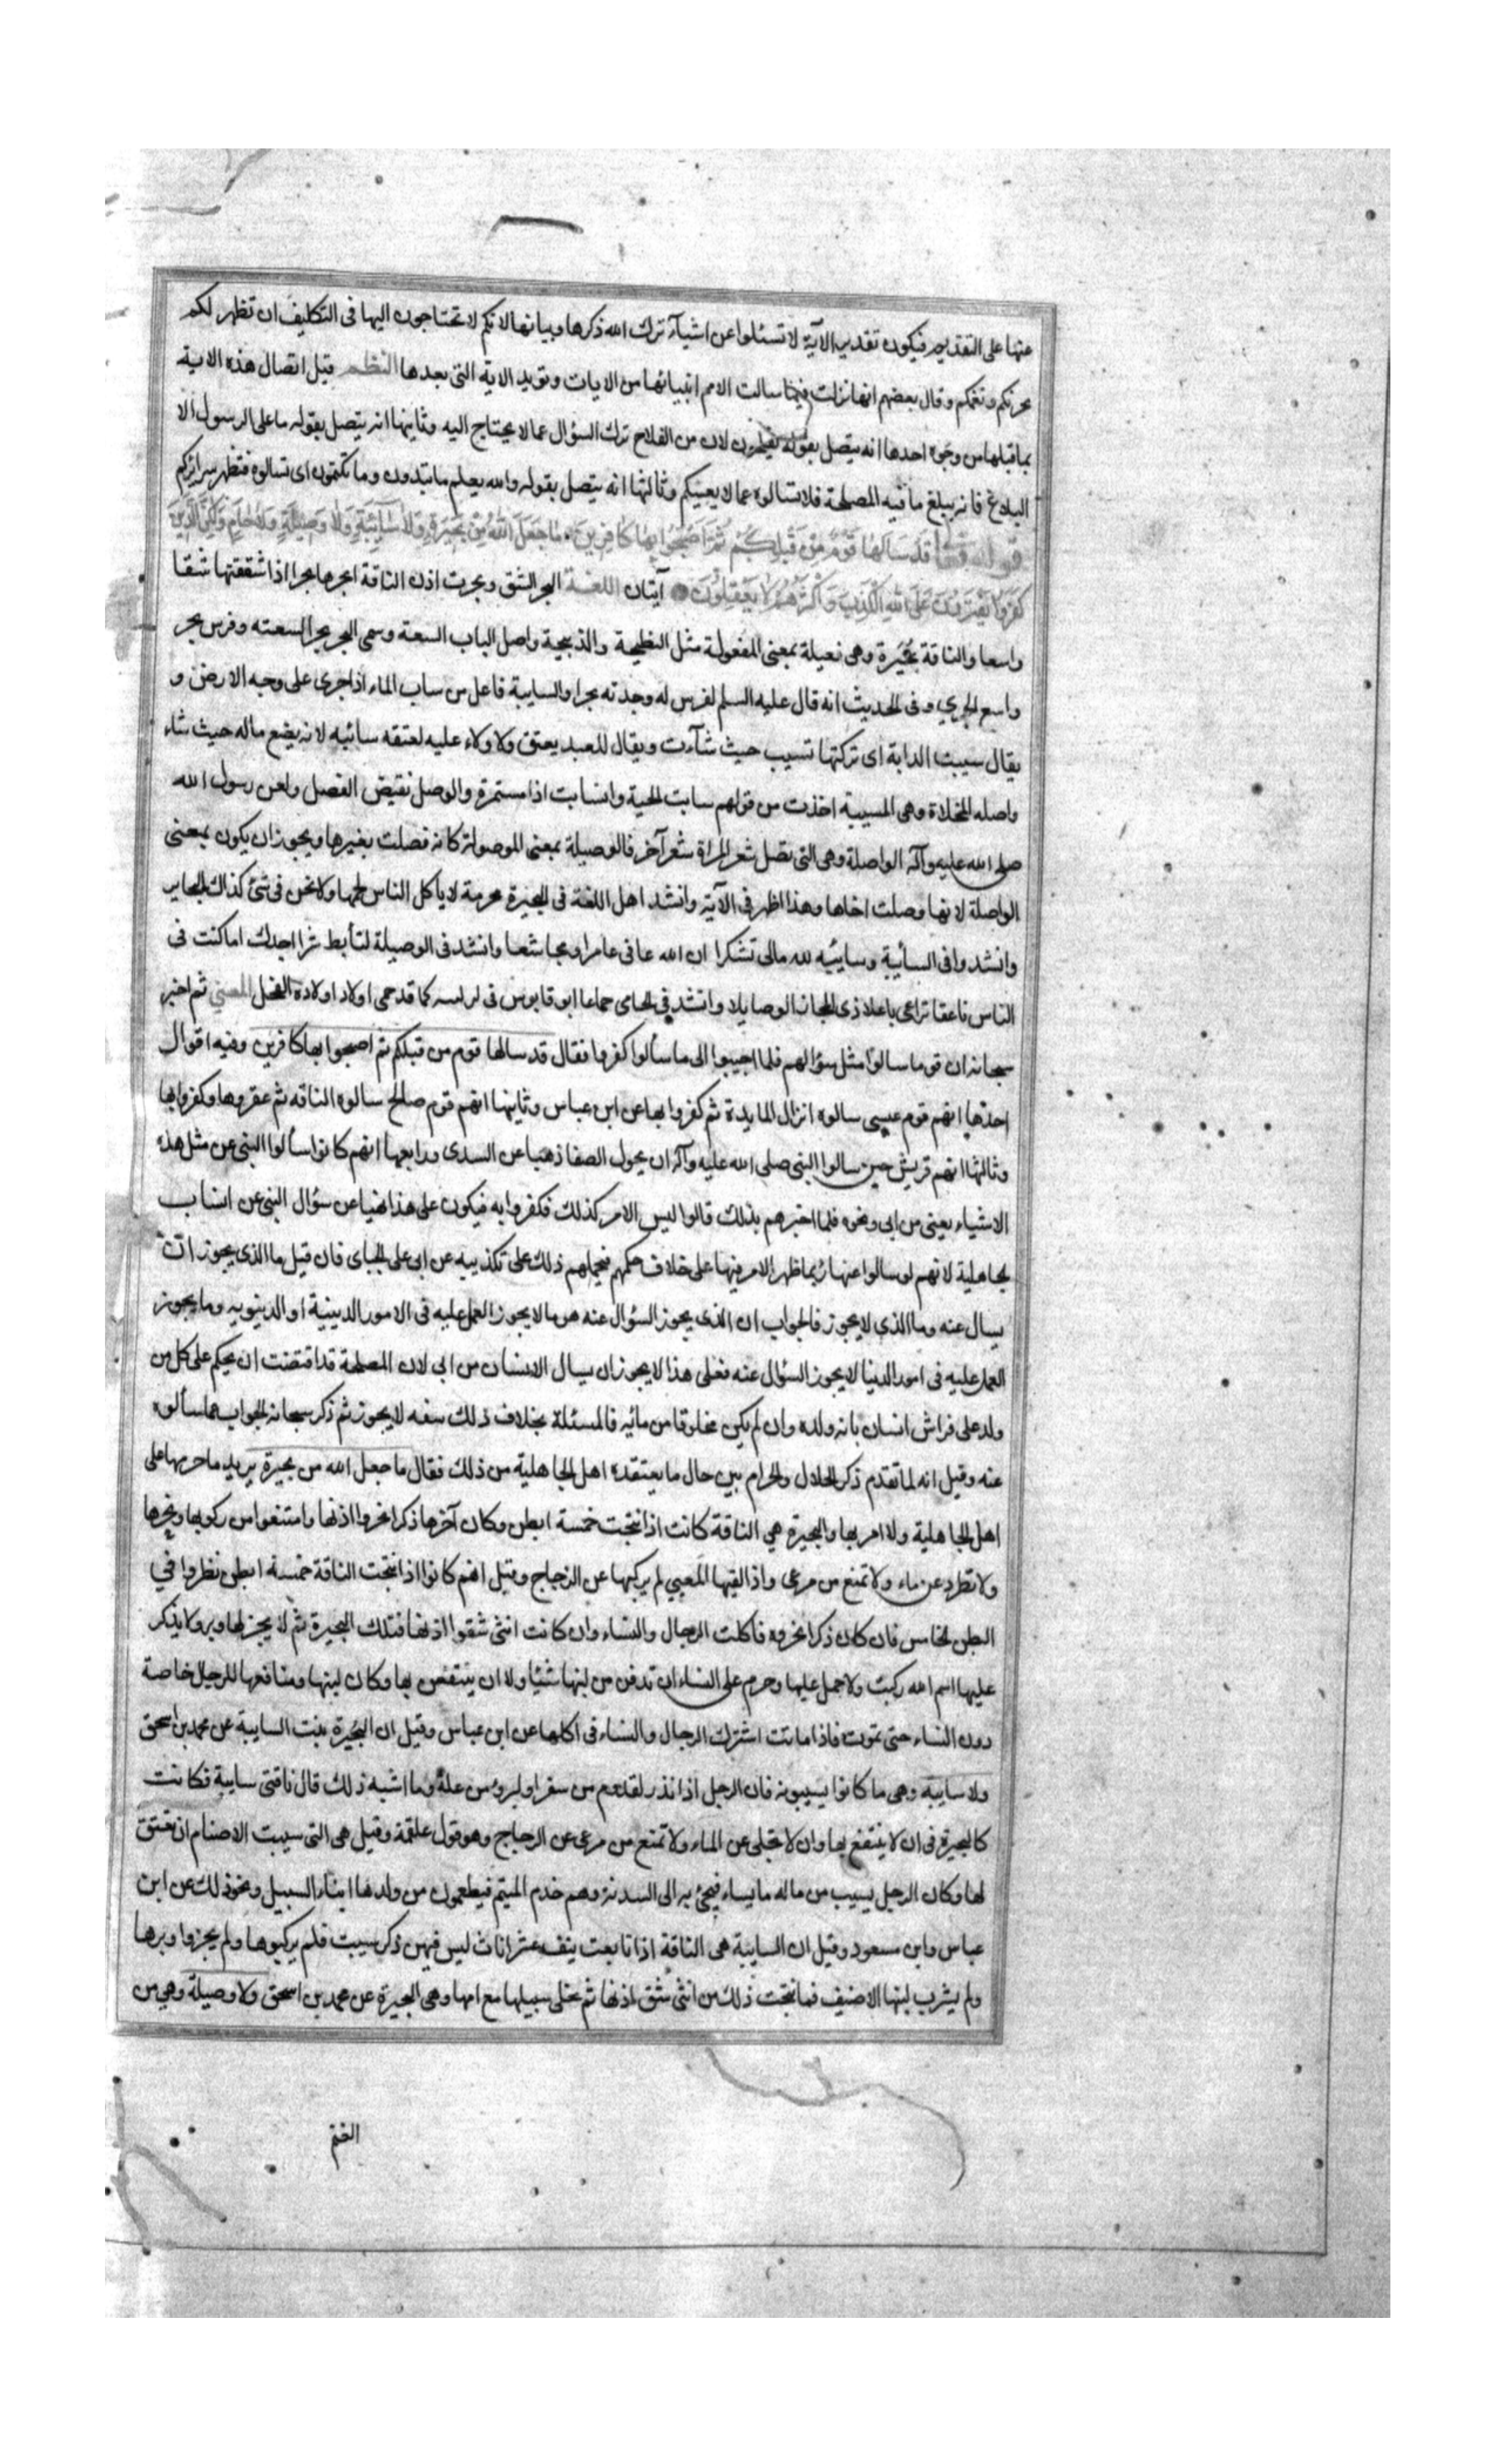 عنها على التقديم فيكون تقدير الآية لا تسئلوا عن اشيآء ترك الله ذكرها وبيانها لانكم لا تحتاجون اليها فى التكليف ان تظهر لكم
تحزنكم وتغمكم وقال بعضهم انها نزلت فيما سالت الامم انبيائها من الايات ويؤيد الاية التى بعدها النظم قيل اتصال هذه الاية
بما قبلها من وجوه احدها انه يتصل بقوله تفلحون لان من الفلاح ترك السؤال عما لا يحتاج اليه وثانيها انه يتصل بقوله ما على الرسول الا
البلاغ فانه يبلغ ما فيه المصلحة فلا تسالوه عما لا يعنيكم وثالثها انه يتصل بقوله والله يعلم ما تبدون وما تكتمون اى تسالوه فتظهر سرائركم
قوله قَدْ سَاَلَهَا قَوْمٌ مِنْ قَبْلِكُمْ ثُمَّ اَصْبَحُوا بِهَا كَافِرِينَ مَا جَعَلَ اللهُ مِنْ بَحِيرَةٍ وَلَا سَآئِبَةٍ وَلَا وَصِيلَةٍ وَلَا حَامٍ وَلَكِنَّ الَّذِينَ
كَفَرُوا يَفْتَرُونَ عَلَى اللهِ الْكَذِبَ وَاَكْثَرُهُمْ لَا يَعْقِلُونَ آيتان اللغة البحر الشق وبحرت اذن الناقة ابحرها بحرا اذا شققتها شقا
واسعا والناقة بَحيرة وهى فعيلة بمعنى المفعولة مثل النطيحة والذبيحة واصل الباب السعة وسمى البحر بحرا لسعته وفرس بحر
واسع الجري وفى الحديث انه قال عليه السلم لفرس له وجدته بحرا والسايبة فاعل من ساب الماء اذا جرى على وجه الارض و
يقال سيبت الدابة اى تركتها تسيب حيث شآءت ويقال للعبد يعتق ولا ولاء عليه لمعتقه سائبه لانه يضع ماله حيث شاء
واصله المخلاة وهى المسيبة اخذت من قولهم سابت الحية وانسابت اذا مستمرة والوصل نقيض الفصل ولعن رسول الله
صلى الله عليه وآله الواصلة وهى التى تصل شعر المراة بشعر آخر فالوصيلة بمعنى الموصولة كانه وصلت بغيرها ويجوز ان يكون بمعنى
الواصلة لانها وصلت اخاها وهذا اظهر فى الآية وانشد اهل اللغة فى البحيرة محرمة لا ياكل الناس لحمها ولا نحن فى شئ كذاك البحاير
وانشدوا فى السآئبة وسايبه لله مالى تشكرا ان الله عافى عامرا ومجاشعا وانشد فى الوصيلة لتأبط شرا اجدك اما كنت فى
الناس ناعقا تراعى باعلا ذى المجاز الوصايلا وانشد فى الحامى حماها ابو قابوس فى كما قد حمى اولاد اولاده الفحل المعنى ثم اخبر
سبحانه ان قوما سالوا مثل سؤالهم فلما اجيبوا الى ما سألوا كفروا فقال قد سالها قوم من قبلكم ثم اصبحوا بها كافرين وفيه اقوال
احدها انهم قوم عيسى سالوه انزال المايدة ثم كفروا بها عن ابن عباس وثانيها انهم قوم صالح سالوه الناقه ثم عقروها وكفروا بها
وثالثها انهم قريش حين سالوا النبى صلى الله عليه وآله ان يحول الصفا ذهبا عن السدى ورابعها انهم كانوا سألوا النبى عن مثل هذه
الاشياء يعنى من ابى ونحوه فلما اخبرهم بذلك قالوا ليس الامر كذلك فكفروا به فيكون على هذا نهيا عن سؤال النبى عن انساب
الجاهلية لانهم لو سالوا عنها ربما ظهر الامر فيها على خلاف حكمهم فيحملهم ذلك على تكذيبه عن ابى على الجباى فان قيل ما الذى يجوز ان
يسال عنه وما الذي لا يجوز فالجواب ان الذى يجوز السؤال عنه هو ما لا يجوز العمل عليه فى الامور الدينية او الدينويه وما يجوز
العمل عليه فى امور الدنيا لا يجوز السؤال عنه فعلى هذا لا يجوز ان يسال الانسان من ابى لان المصلحة قد اقتضت ان يحكم على كل من
ولد على فراش انسان بانه ولده وان لم يكن مخلوقا من مائيه فالمسئلة بخلاف ذلك سفه لا يجوز ثم ذكر سبحانه الجواب عما سألوه
عنه وقيل انه لما تقدم ذكر الحلال والحرام بين حال ما يعتقده اهل الجاهلية من ذلك فقال ما جعل الله من بحيرة يريد ما حرمها على
اهل الجاهلية ولا امر بها والبحيرة هي الناقة كانت اذا نتجت خمسة ابطن وكان آخرها ذكرا بحروا اذنها وامتنعوا من ركوبها ونحرها
ولا تطرد عن ماء ولا تمنع من مرعى واذا لقيها المعيي لم يركبها عن الزجاج وقيل انهم كانوا اذا نتجت الناقة خمسة ابطن نظروا في
البطن الخامس فان كان ذكرا نحروه فاكلت الرجال والنساء وان كانت انثى شقوا اذنها فتلك البحيرة ثم لا يجز لها وبر ولا يذكر
عليها اسم الله ركبت ولا حمل عليها وحرم على النساء ان تذقن من لبنها شئيا ولا ان ينتفعن بها وكان لبنها ومنافعها للرجال خاصة
دون النساء حتى تموت فاذا ماتت اشترك الرجال والنساء فى اكلها عن ابن عباس وقيل ان البحيرة بنت السايبة عن محمد بن اسحق
ولا سايبه وهى ما كانوا يسيبونه فان الرجل اذا نذر لقدوم من سفر او لبرؤ من علة وما اشبه ذلك قال ناقتى سايبة فكانت
كالبحيرة فى ان لا ينتفع بها وان لا تخلى عن الماء ولا تمنع من مرعى عن الزجاج وهو قول علقمة وقيل هى التى سيبت الاصنام ان تعتق
لها وكان الرجل يسيب من ماله ما يساء فيجئ به الى السدنة وهم خدم فيطعمون من ولدها ابناء السبيل ونحو ذلك عن ابن
عباس وابن مسعود وقيل ان السايبة هى الناقة اذا تابعت بنف عشر اناث ليس فيهن ذكر سيبت فلم يركبوها ولم يجزوا وبرها
ولم يشرب لبنها الا ضيف فما نتجت ذلك من انثى شق اذنها ثم تخلى سبيلها مع امها وهى البحيرة عن محمد بن اسحق ولا وصيلة وهى من
الغنم